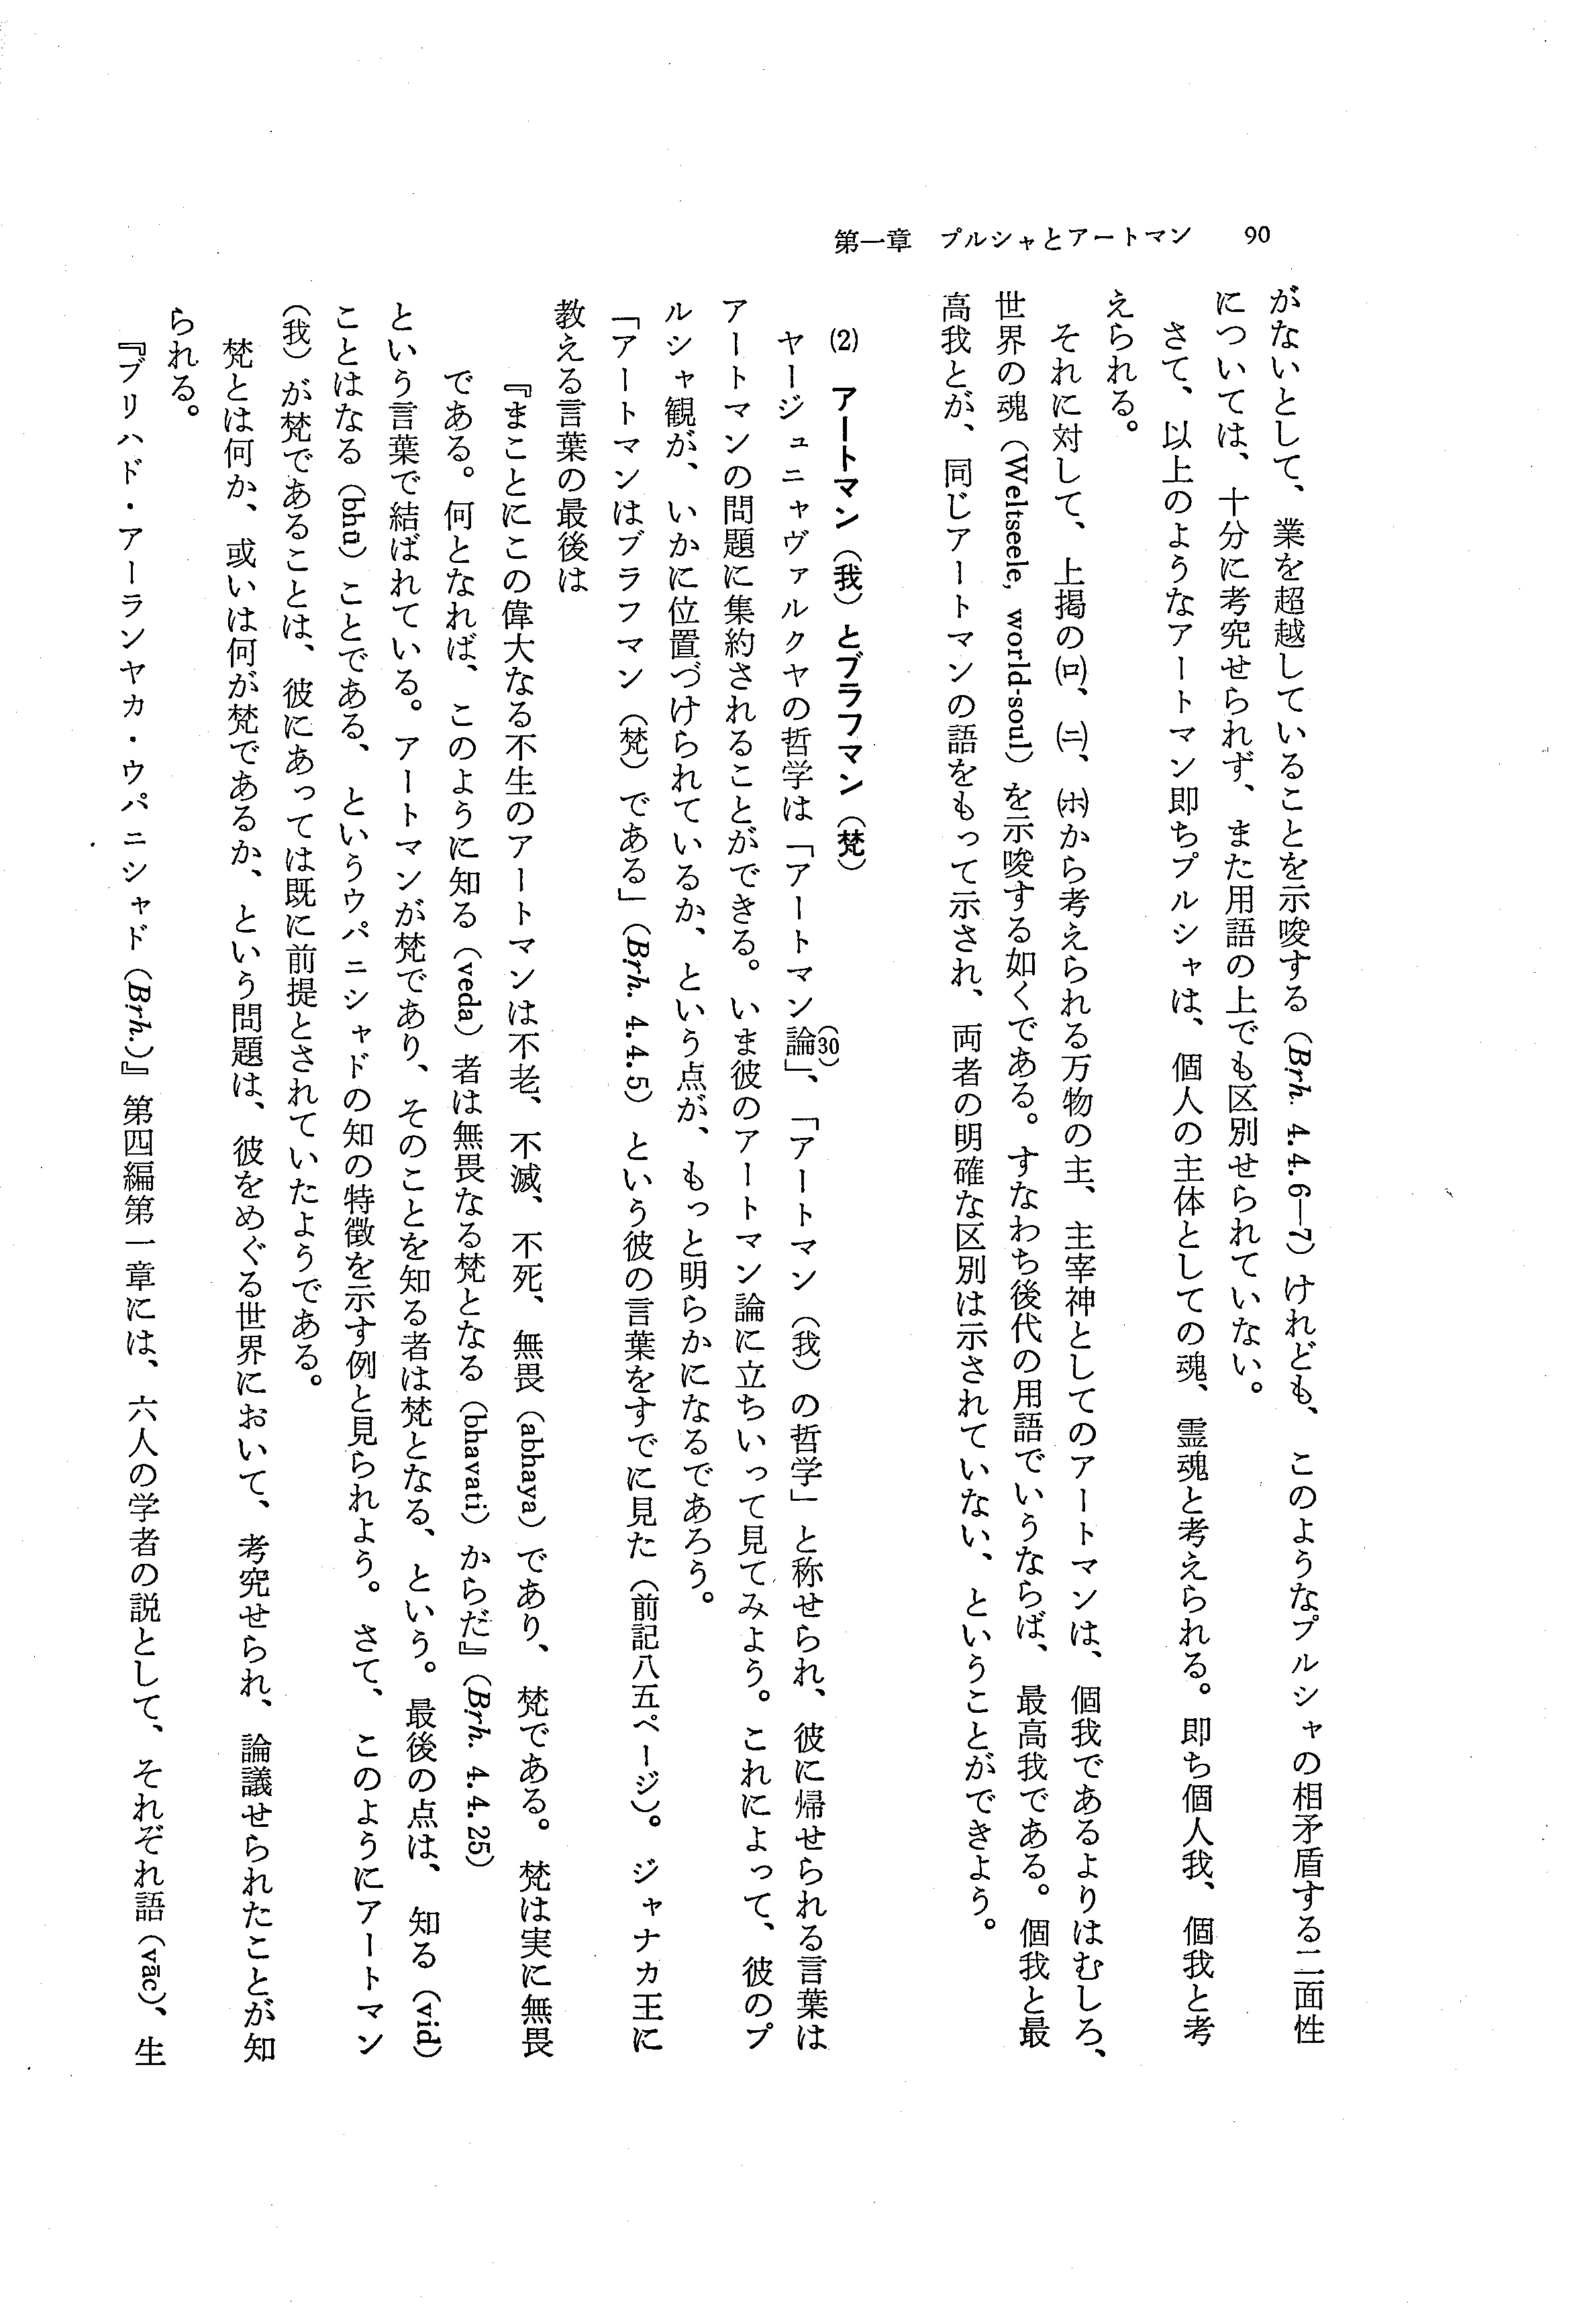 第一章　プルシャとアートマン　90
がないとして、業を超越していることを示唆する（Bṛh. 4.4.6—7）けれども、このようなプルシャの相矛盾する二面性
については、十分に考究せられず、また用語の上でも区別せられていない。
　さて、以上のようなアートマン即ちプルシャは、個人の主体としての魂、霊魂と考えられる。即ち個人我、個我と考
えられる。
　それに対して、上掲の㈺、㈥、㈭から考えられる万物の主、主宰神としてのアートマンは、個我であるよりはむしろ、
世界の魂（Weltseele, world-soul）を示唆する如くである。すなわち後代の用語でいうならば、最高我である。個我と最
高我とが、同じアートマンの語をもって示され、両者の明確な区別は示されていない、ということができよう。
(2)　アートマン（我）とブラフマン（梵）
　ヤージュニャヴァルクヤの哲学は「アートマン論」(30)、「アートマン（我）の哲学」と称せられ、彼に帰せられる言葉は
アートマンの問題に集約されることができる。いま彼のアートマン論に立ちいって見てみよう。これによって、彼のプ
ルシャ観が、いかに位置づけられているか、という点が、もっと明らかになるであろう。
「アートマンはブラフマン（梵）である」（Bṛh. 4.4.5）という彼の言葉をすでに見た（前記八五ページ）。ジャナカ王に
教える言葉の最後は
　『まことにこの偉大なる不生のアートマンは不老、不滅、不死、無畏（abhaya）であり、梵である。梵は実に無畏
　である。何となれば、このように知る（veda）者は無畏なる梵となる（bhavati）からだ』（Bṛh. 4.4.25）
という言葉で結ばれている。アートマンが梵であり、そのことを知る者は梵となる、という。最後の点は、知る（vid）
ことはなる（bhū）ことである、というウパニシャドの知の特徴を示す例と見られよう。さて、このようにアートマン
（我）が梵であることは、彼にあっては既に前提とされていたようである。
　梵とは何か、或いは何が梵であるか、という問題は、彼をめぐる世界において、考究せられ、論議せられたことが知
られる。
　『ブリハド・アーランヤカ・ウパニシャド（Bṛh.）』第四編第一章には、六人の学者の説として、それぞれ語（vāc）、生